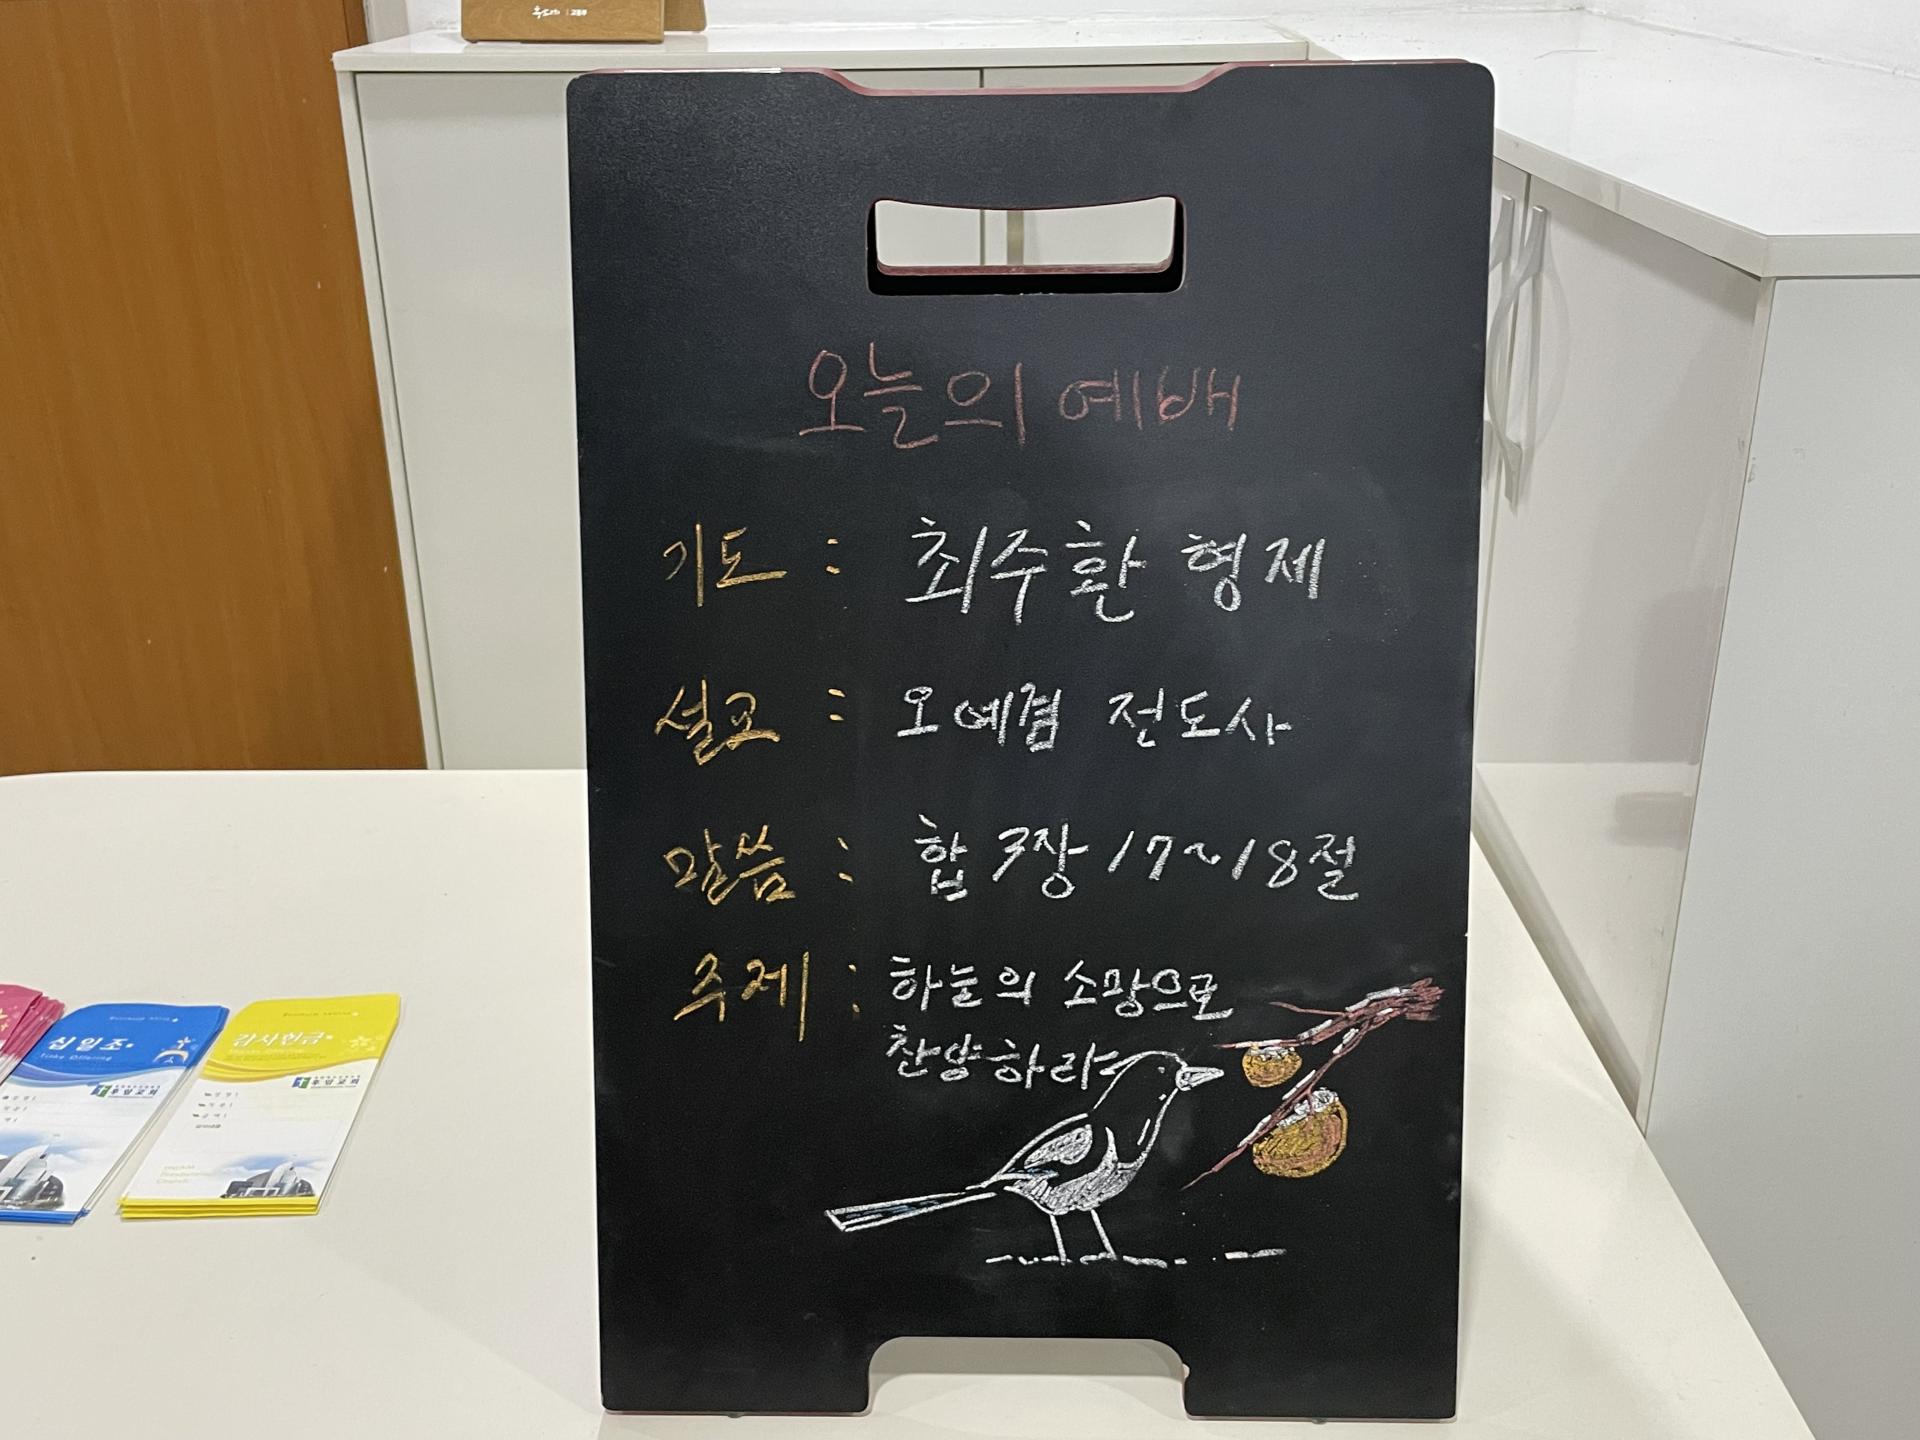 오늘의 예배
기도 : 최수환 형제
설교 : 오예겸 전도사
말씀 : 합 3장 17~18절
주제 : 하늘의 소망으로
찬양하라
십일조
감사헌금
후암교회
후암교회